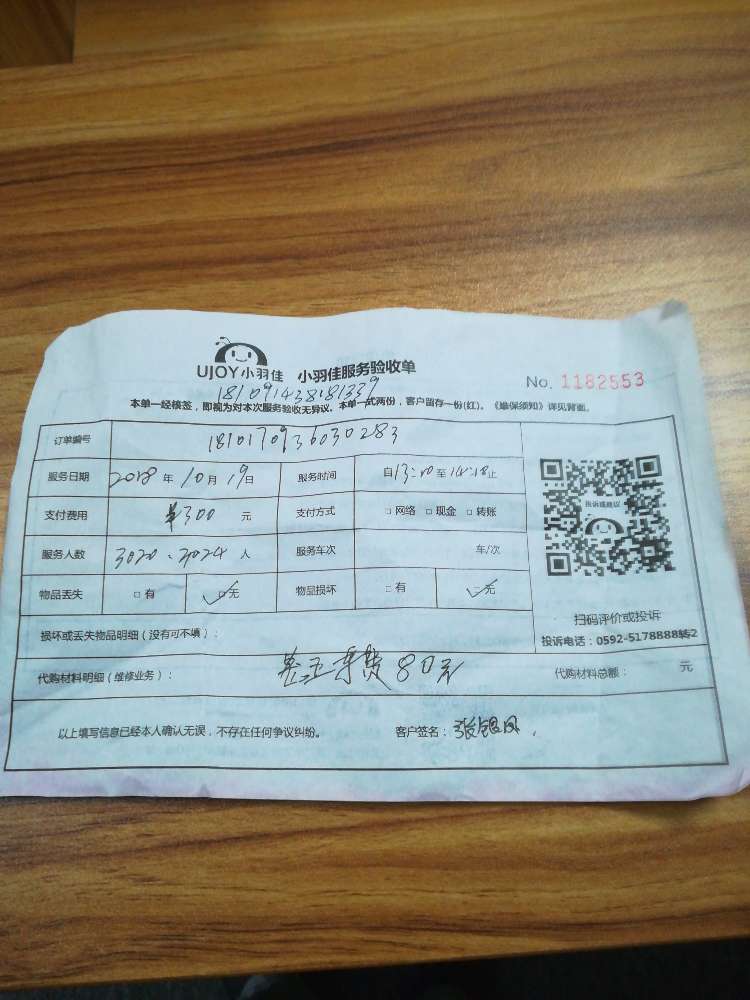 UJOY小羽佳 小羽佳服务验收单
No. 1182553
181091438181339
本单一经核签，即视为对本次服务验收无异议。本单一式两份，客户留存一份(红)。《维保须知》详见背面。
订单编号 1810170936030283
服务日期 2018年10月19日 服务时间 自13:20至14:18止
支付费用 ¥300 元 支付方式 □网络 □现金 □转账
服务人数 3020、2024 人 服务车次 车/次
物品丢失 □有 ☑无 物品损坏 □有 ☑无
投诉或建议
扫码评价或投诉
投诉电话：0592-5178888转2
损坏或丢失物品明细（没有可不填）：
代购材料明细（维修业务）： 80元 代购材料总额： 元
以上填写信息已经本人确认无误，不存在任何争议纠纷。 客户签名：张银凤